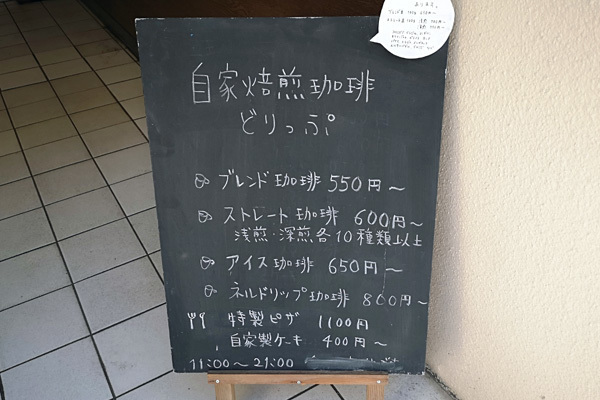 自家焙煎珈琲
どりっぷ
ブレンド珈琲 550円〜
ストレート珈琲 600円〜
浅煎・深煎各10種類以上
アイス珈琲 650円〜
ネルドリップ珈琲 800円〜
特製ピザ 1100円
自家製ケーキ 400円〜
11:00〜21:00